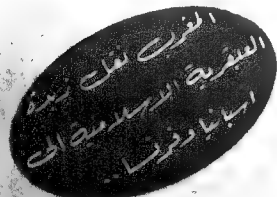 المغرب نقل زبدة
العبقرية الاسلامية الى
اسبانيا وفرنسا ..